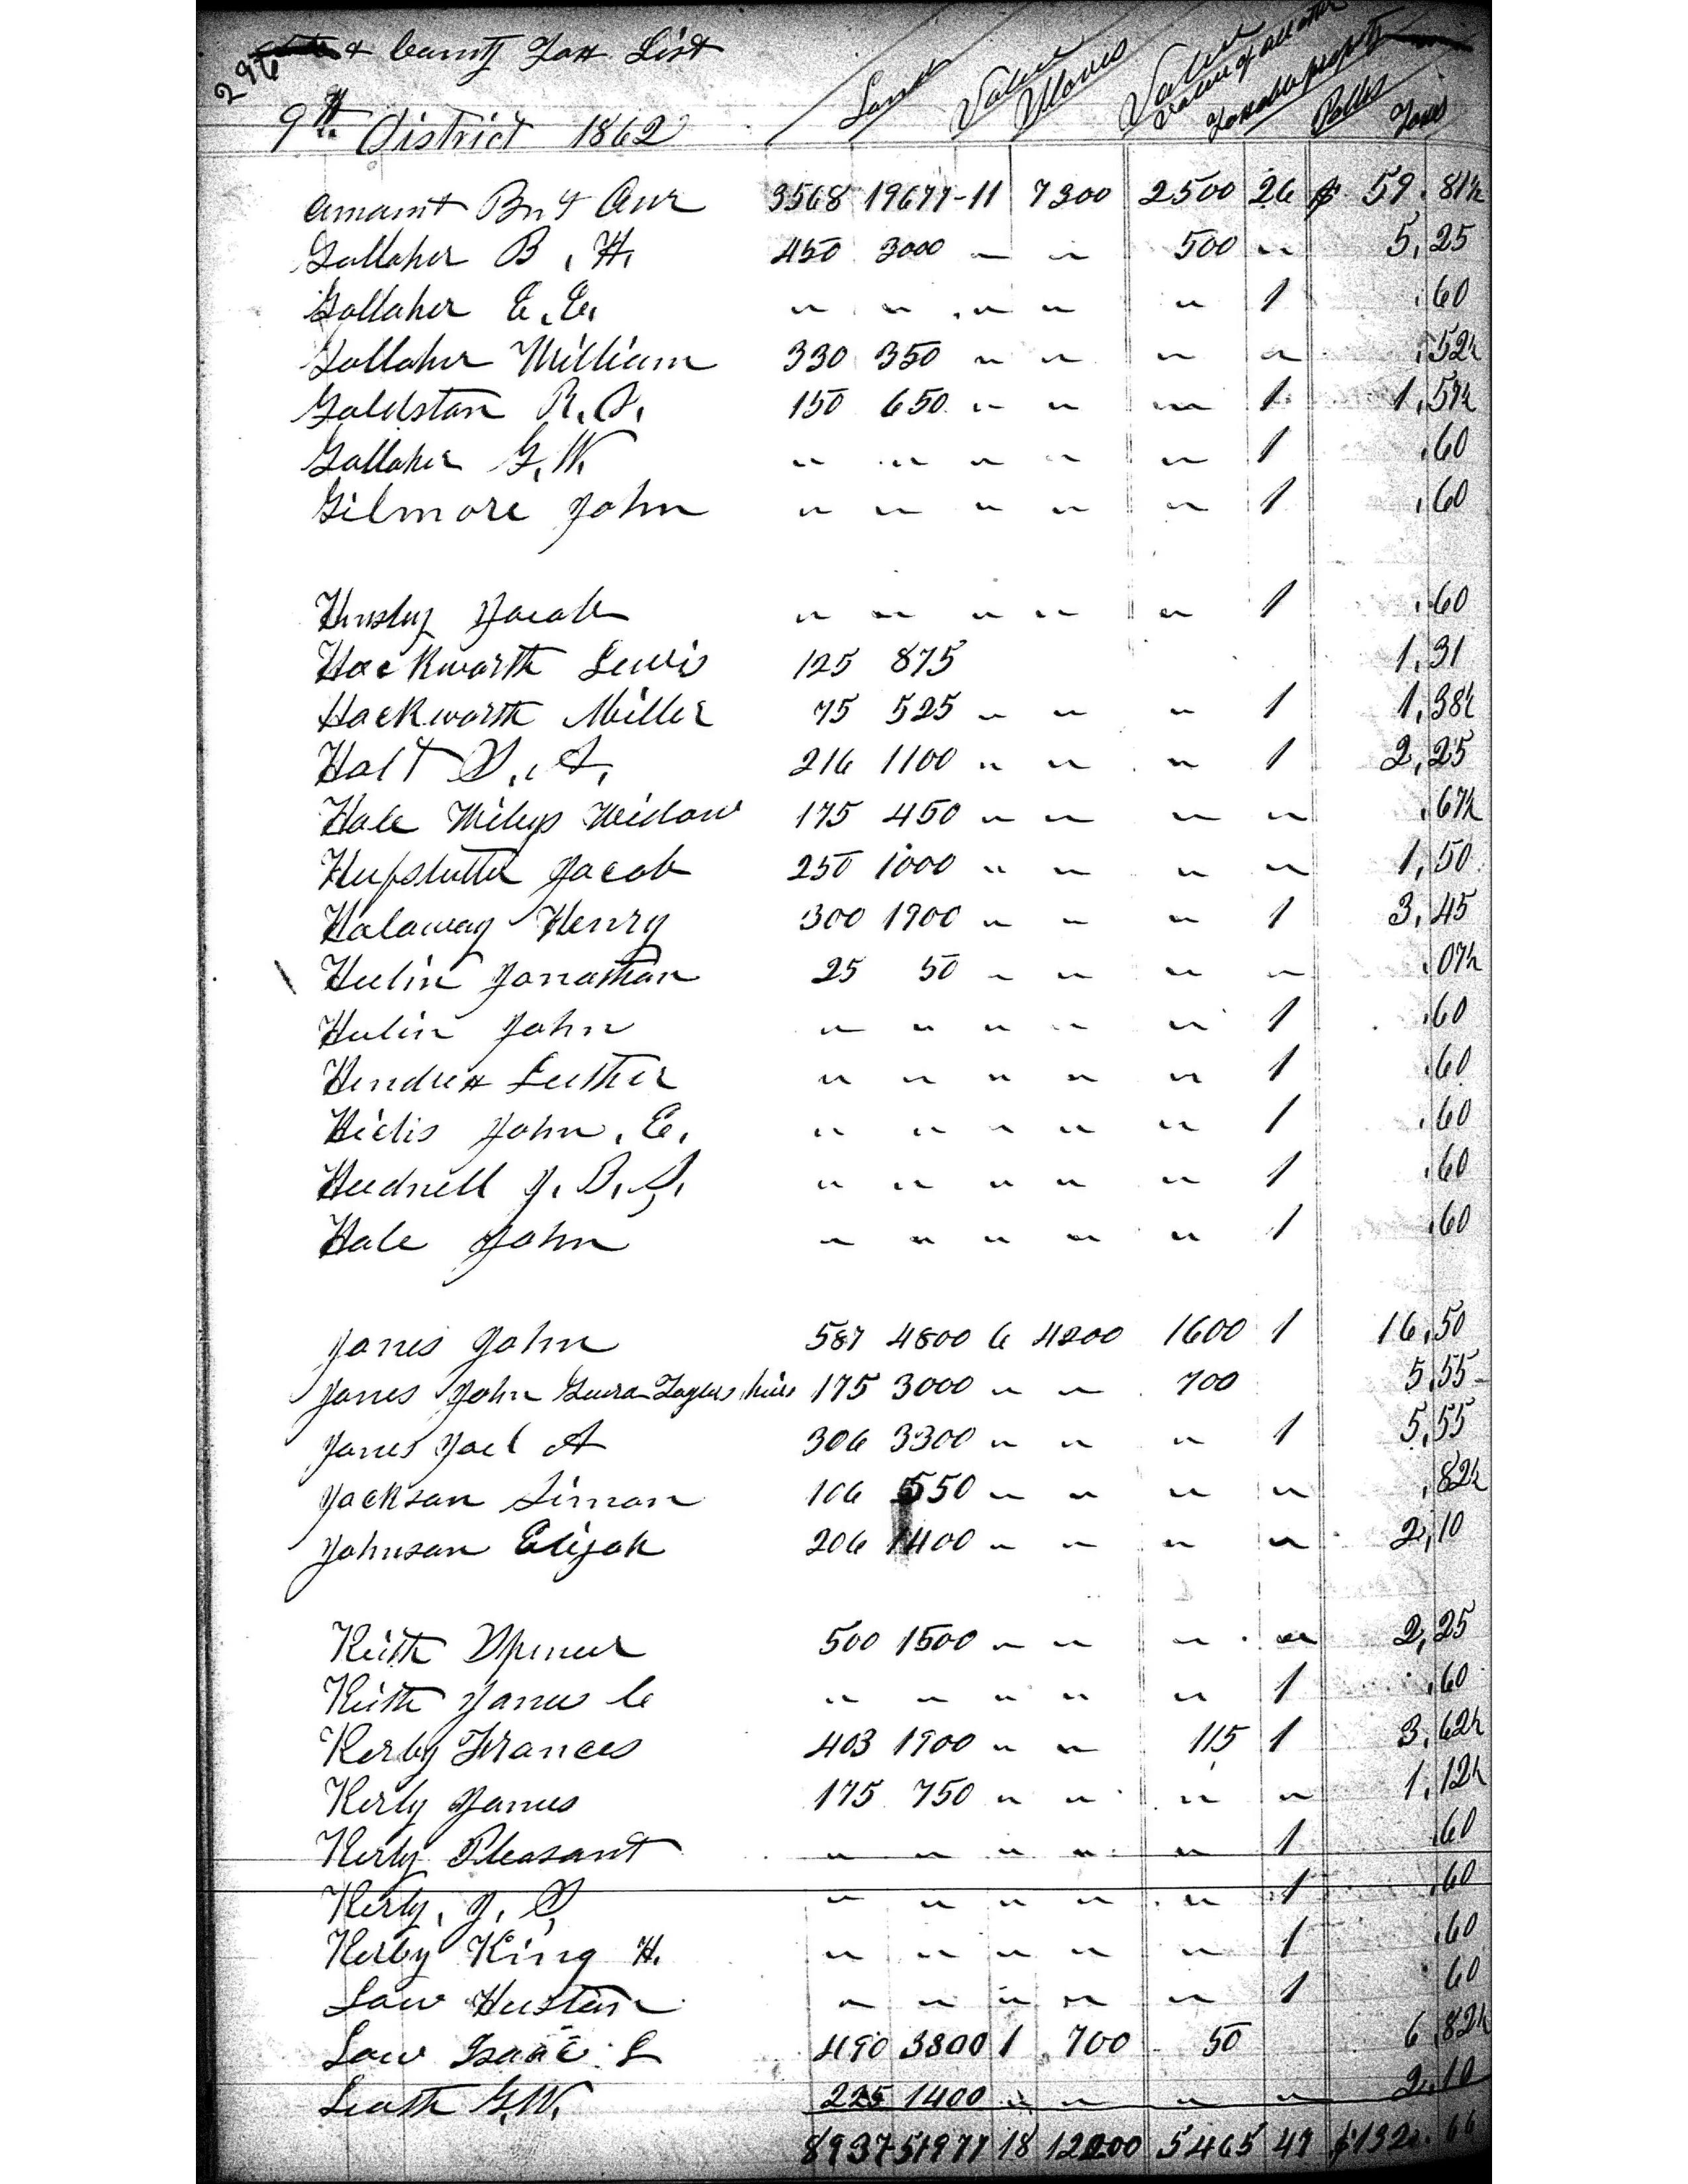 296 & County Tax List
Land Value Slaves Value Value of all other Taxable property Polls Taxes
9th District 1862
Amount Brt Over 3568 19677 - 11 7300 2500 26 $ 59.81½
Gallaher B. H. 450 3000 " " 500 " 5,25
Gallaher E. E. " " " " " 1 .60
Gallaher William 330 350 " " " " .52½
Goldston R. S. 150 650 " " " 1 1,57½
Gallaher G. W. " " " " " 1 .60
Gilmore John " " " " " 1 .60
Hensley Jacob " " " " " 1 .60
Hackworth Lewis 125 875 1,31
Hackworth Miller 75 525 " " " 1 1,38½
Holt A. 216 1100 " " " 1 2,25
Hale Mileys Widow 175 450 " " " " .67½
Hufstutter Jacob 250 1000 " " " " 1,50
Halaway Henry 300 1900 " " " 1 3,45
Hulin Jonathan 25 50 " " " " .07½
Hulin John " " " " " 1 .60
Hendrex Luther " " " " " 1 .60
John. E. " " " " " 1 .60
Hudnell J. B. S. " " " " " 1 .60
Hale John " " " " " 1 .60
Jones John 587 4800 6 4200 1600 1 16,50
Jones John Taylors heirs 175 3000 " " 700 5,55
Jones Joel A 306 3300 " " " 1 5,55
Jackson Simon 106 550 " " " " .82½
Johnson Elijah 206 1400 " " " " 2,10
Keith Spencer 500 1500 " " " " 2,25
Keith James C " " " " " 1 .60
Kerby Frances 403 1900 " " 115 1 3,62½
Kerby James 175 750 " " " " 1,12½
Kerby Pleasant " " " " " 1 .60
Kerby, J. " " " " " 1 .60
Kerby King H. " " " " " 1 .60
Low Hustan " " " " " 1 60
Low Isaac L 490 3800 1 700 50 6.82½
Leath G.W. 225 1400 " " " " 2,10
8937 51977 18 12200 5465 47 $132.66